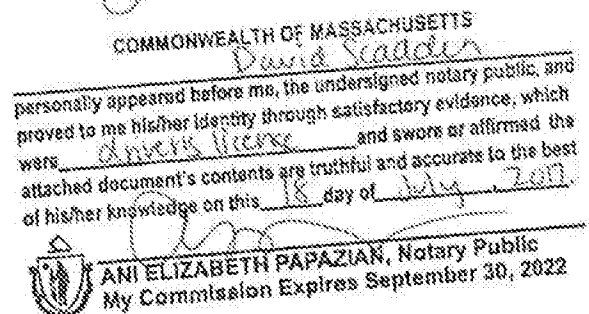 COMMONWEALTH OF MASSACHUSETTS
David Scadden
personally appeared before me, the undersigned notary public, and
proved to me his/her identity through satisfactory evidence, which
were drivers license and swore or affirmed the
attached document's contents are truthful and accurate to the best
of his/her knowledge on this 18 day of July, 2017.
ANI ELIZABETH PAPAZIAN, Notary Public
My Commission Expires September 30, 2022